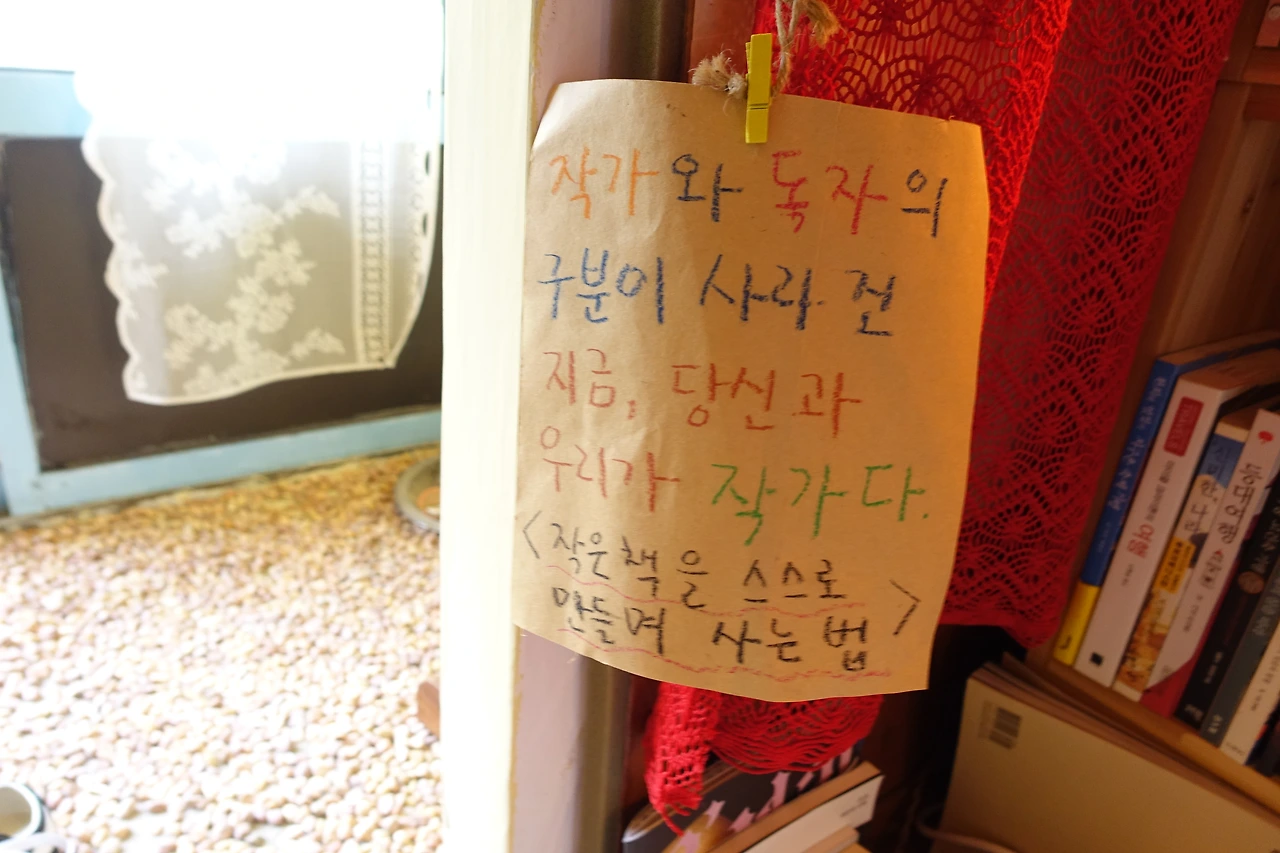 작가와 독자의
구분이 사라 진
지금, 당신과
우리가 작가다.
<작은책을 스스로
만들며 사는 법>
여행